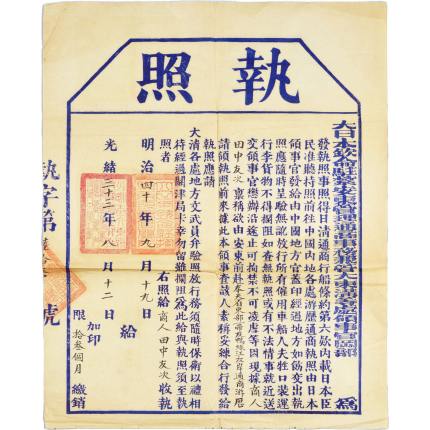 執照
大日本欽命駐紮安東管理通商事務兼管大東溝 領事官岡部 為
發執照事照得日清通商行船條約第六款內載日本臣
民准聽持照前往中國內地各處游歷通商執照由日本
領事官發給由中國地方官蓋印經過地方如飭交出執
照應隨時呈驗無訛放行所有僱用車船人夫牲口裝運
行李貨物不得攔阻如查無執照或有不法情事就近送
交領事官懲辦沿途止可拘禁不可凌虐等因現據商人
田中友次 稟稱欲由安東前赴奉天省東部 通商游歷
請領執照前來據此本領事查該人素稱安練合行發給
執照應請
大清各處地方文武員弁驗照放行務須隨時保衛以禮相
待經過關津局卡幸勿留難攔阻為此給與執照須至執
照者
右照給商人田中友次 收執
明治四十年九月十九日
給
光緒三十三年八月十二日
加印
限拾叁個月 繳銷
執字第 號